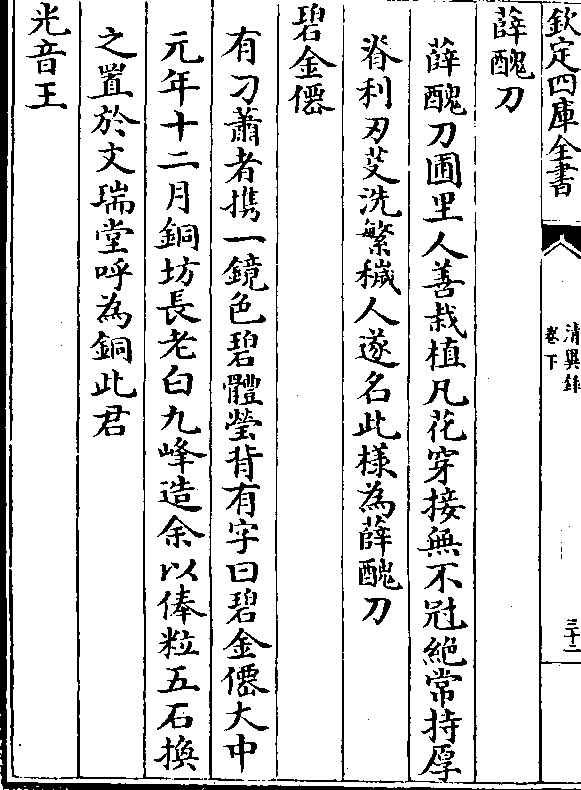 欽定四庫全書
清異錄
卷下
三十二
薛醜刀
薛醜刀圃里人善栽植凡花穿接無不冠絶常持厚
脊利刃芟洗繁穢人遂名此様為薛醜刀
碧金僊
有刁蕭者携一鏡色碧體瑩背有字曰碧金僊大中
元年十二月銅坊長老白九峰造余以俸粒五石換
之置於文瑞堂呼為銅此君
光音王